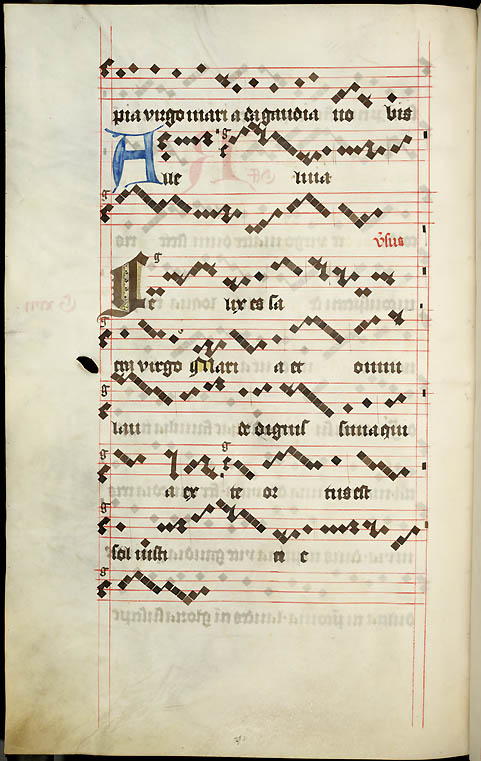 pia virgo maria da gaudia no bis
Alle luia
v̄sus
Fe lix es sa
cra virgo Maria et omni
lau de dignis sima qui
a ex te or tus est
sol iusti ti e